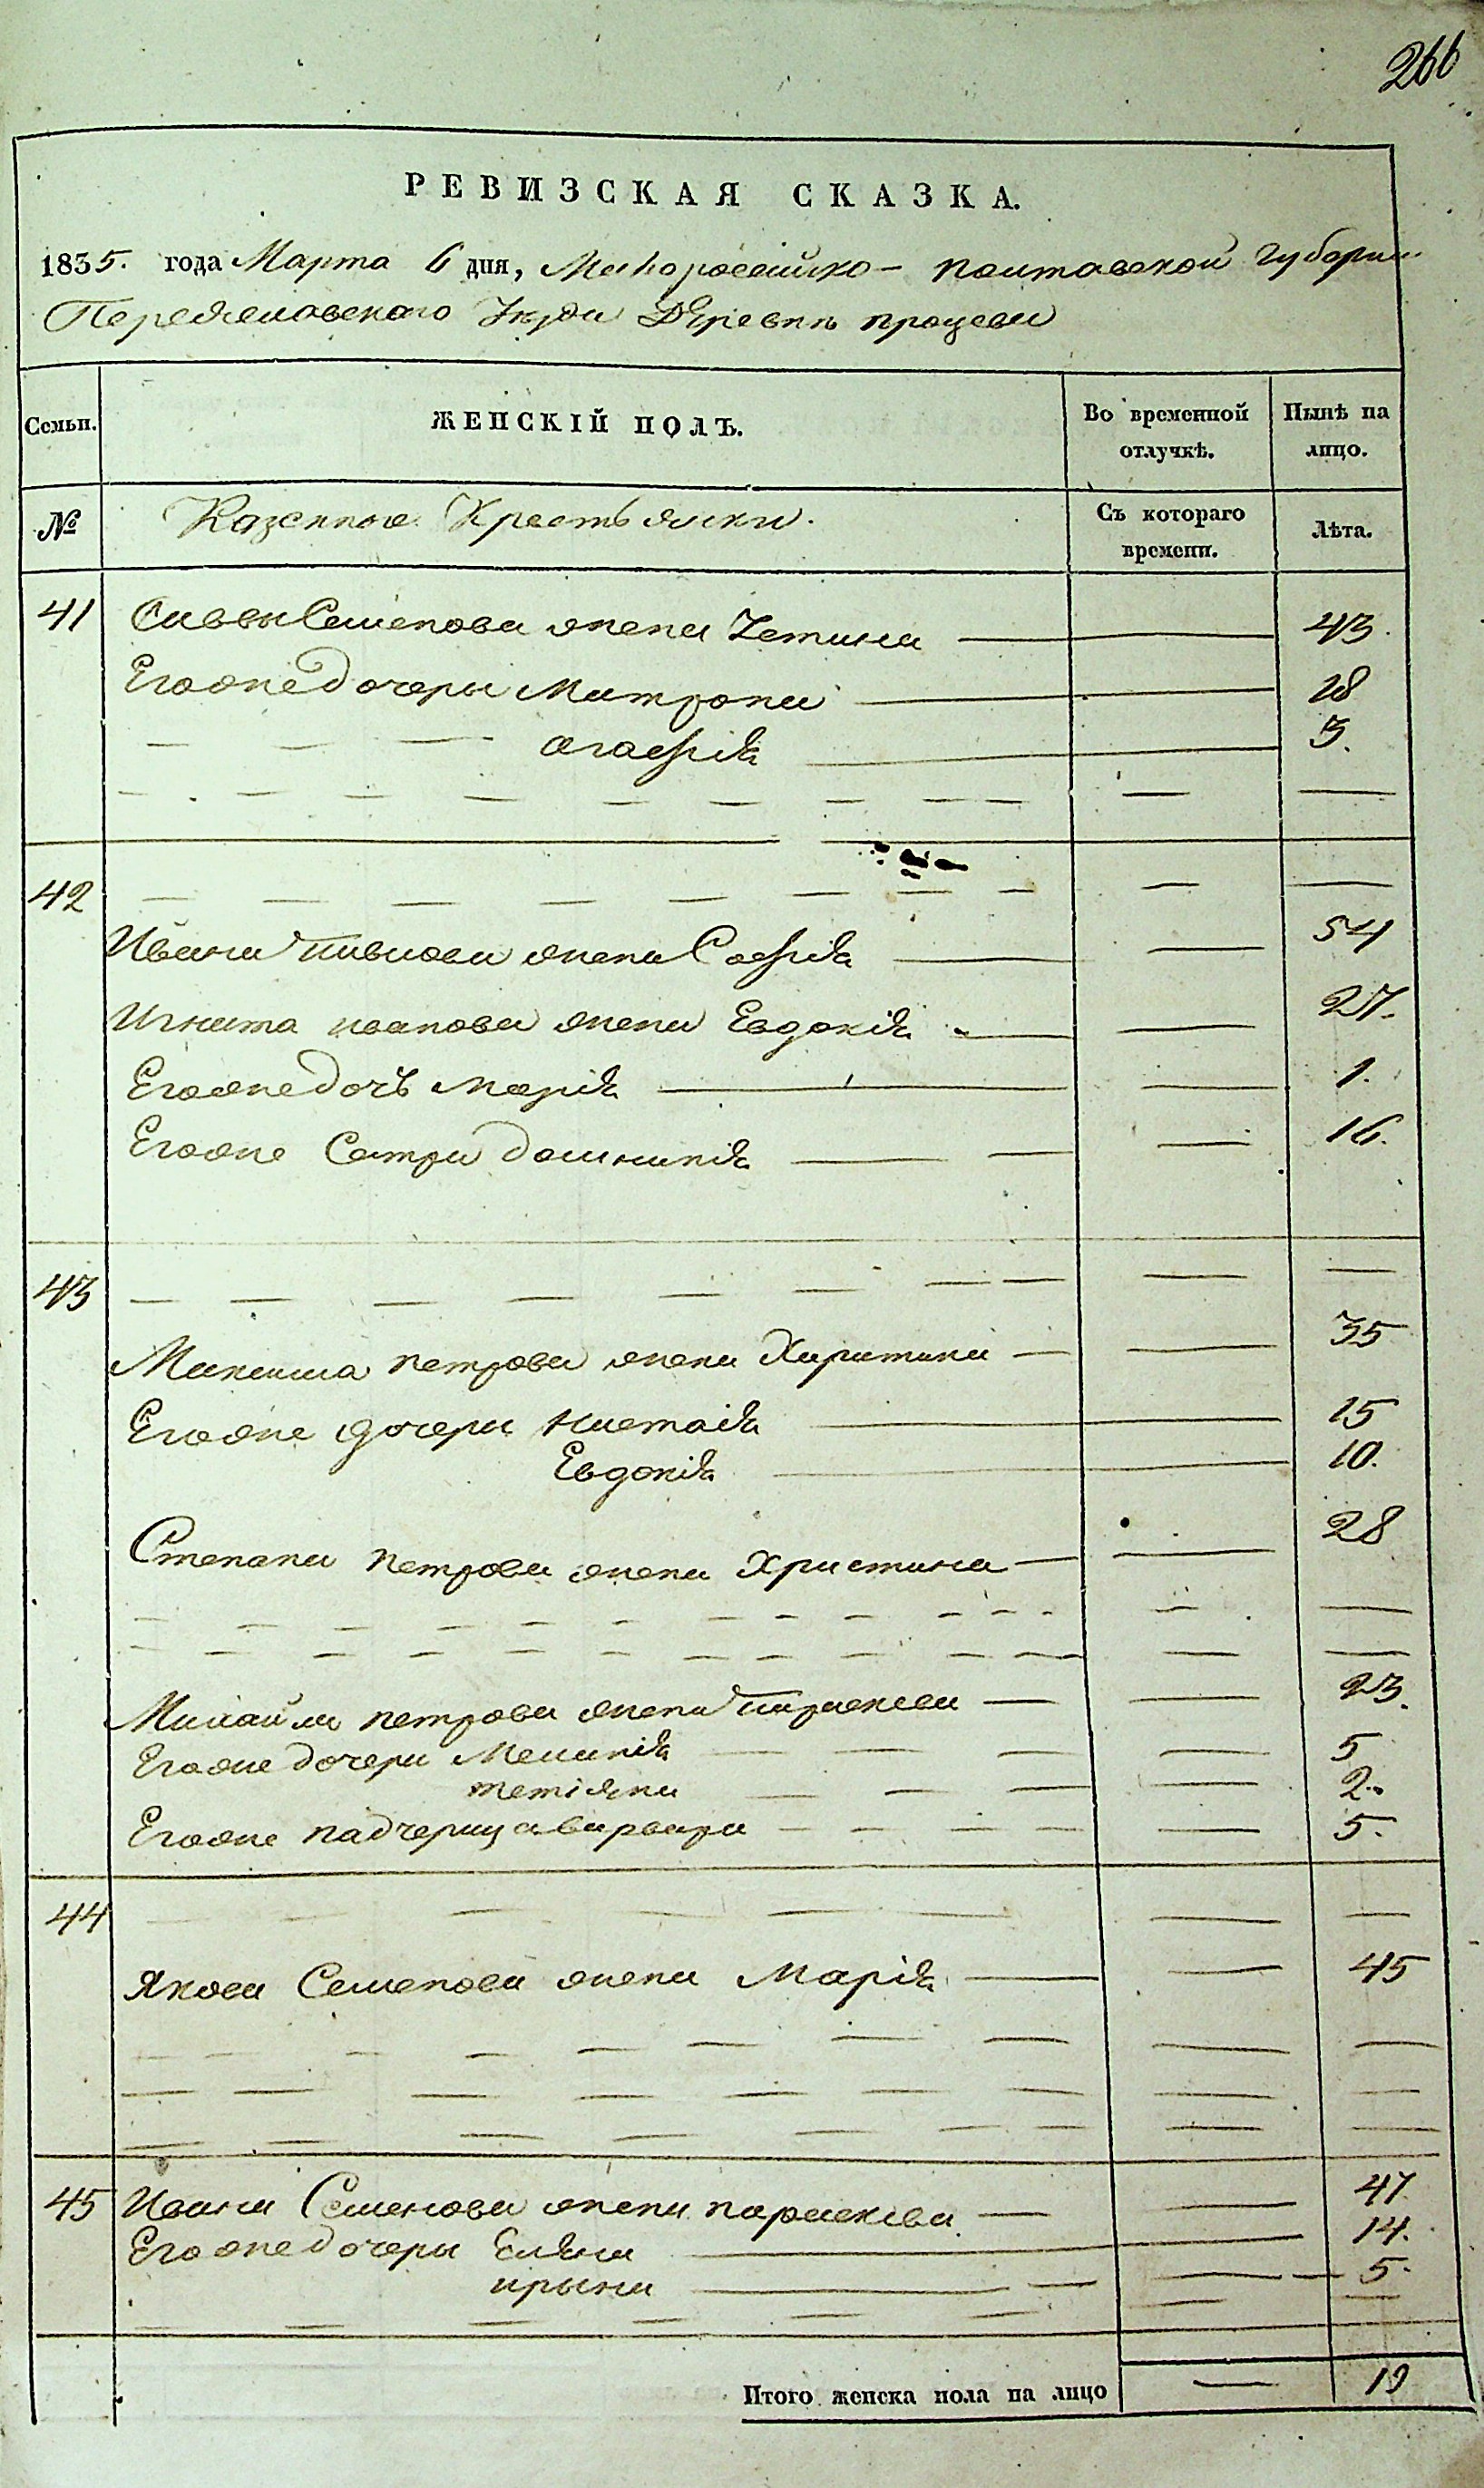 266
РЕВИЗСКАЯ СКАЗКА.
1835. года Марта 6 дня, Малороссійско- полтавской губерни
Переяславского Уезда Деревни процевы
Семьи.
ЖЕНСКІЙ ПОЛЪ.
Во временной отлучкѣ.
Нынѣ на лицо.
№
Казенные Крестьянки.
Съ котораго времени.
Лѣта.
41 Савы Семенова жена Устина 43.
Егоже дочеры Матрона 18
агафія 3.
42
Ивана павлова жена Софія 54
Игната иванова жена Евдокія 27.
Егоже дочъ Марія 1.
Егоже Сестра домникія 16.
43
Максима петрова жена Харитина 35
Егоже дочеры Настасія 15
Евдокія 10.
Степана петрова жена Христина 28
Михайла петрова жена параскева 23.
Егоже дочеры Меланія 5
тетіяна 2.
Егоже падчерица варвара 5.
44
Якова Семенова жена Марія 45
45 Ивана Семенова жена параскева 47.
Егоже дочеры Еляна 14.
ирына 5.
Итого женска пола на лицо 19